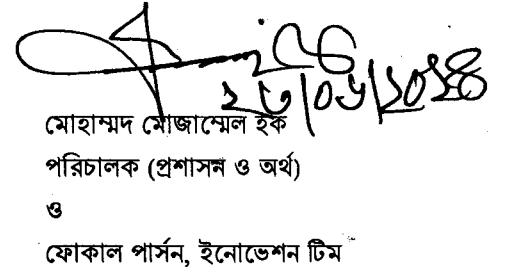 ২৩/০৬/২০২৪
মোহাম্মদ মোজাম্মেল হক
পরিচালক (প্রশাসন ও অর্থ)
ও
ফোকাল পার্সন, ইনোভেশন টিম